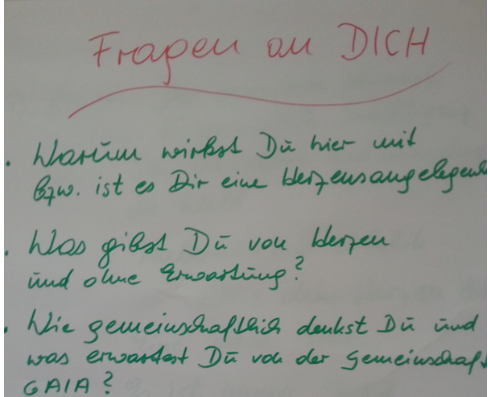 Fragen an DICH
. Warum wirkst Du hier mit
bzw. ist es Dir eine Herzensangelegenh
. Was gibst Du von Herzen
und ohne Erwartung?
. Wie gemeinschaftlich denkst Du und
was erwartest Du von der Gemeinschaf
GAIA?